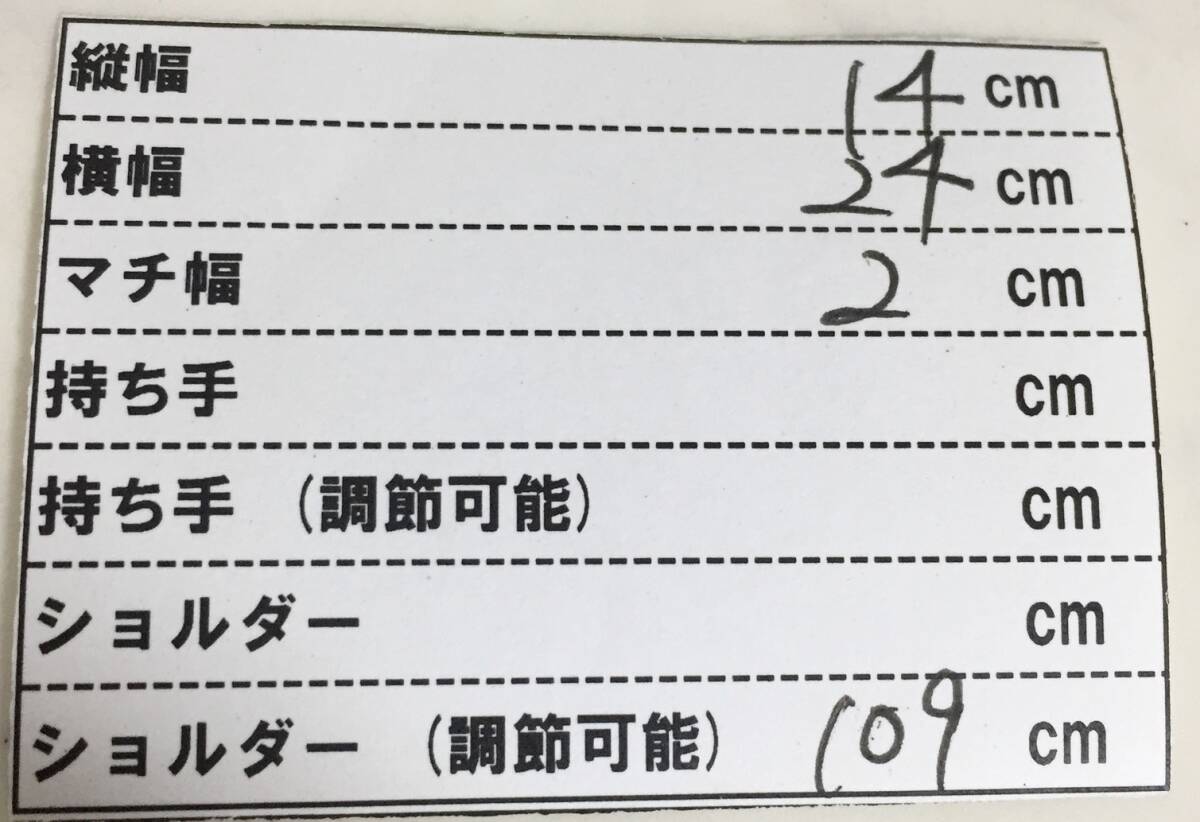 縦幅 14 cm
横幅 24 cm
マチ幅 2 cm
持ち手 cm
持ち手 (調節可能) cm
ショルダー cm
ショルダー (調節可能) 109 cm